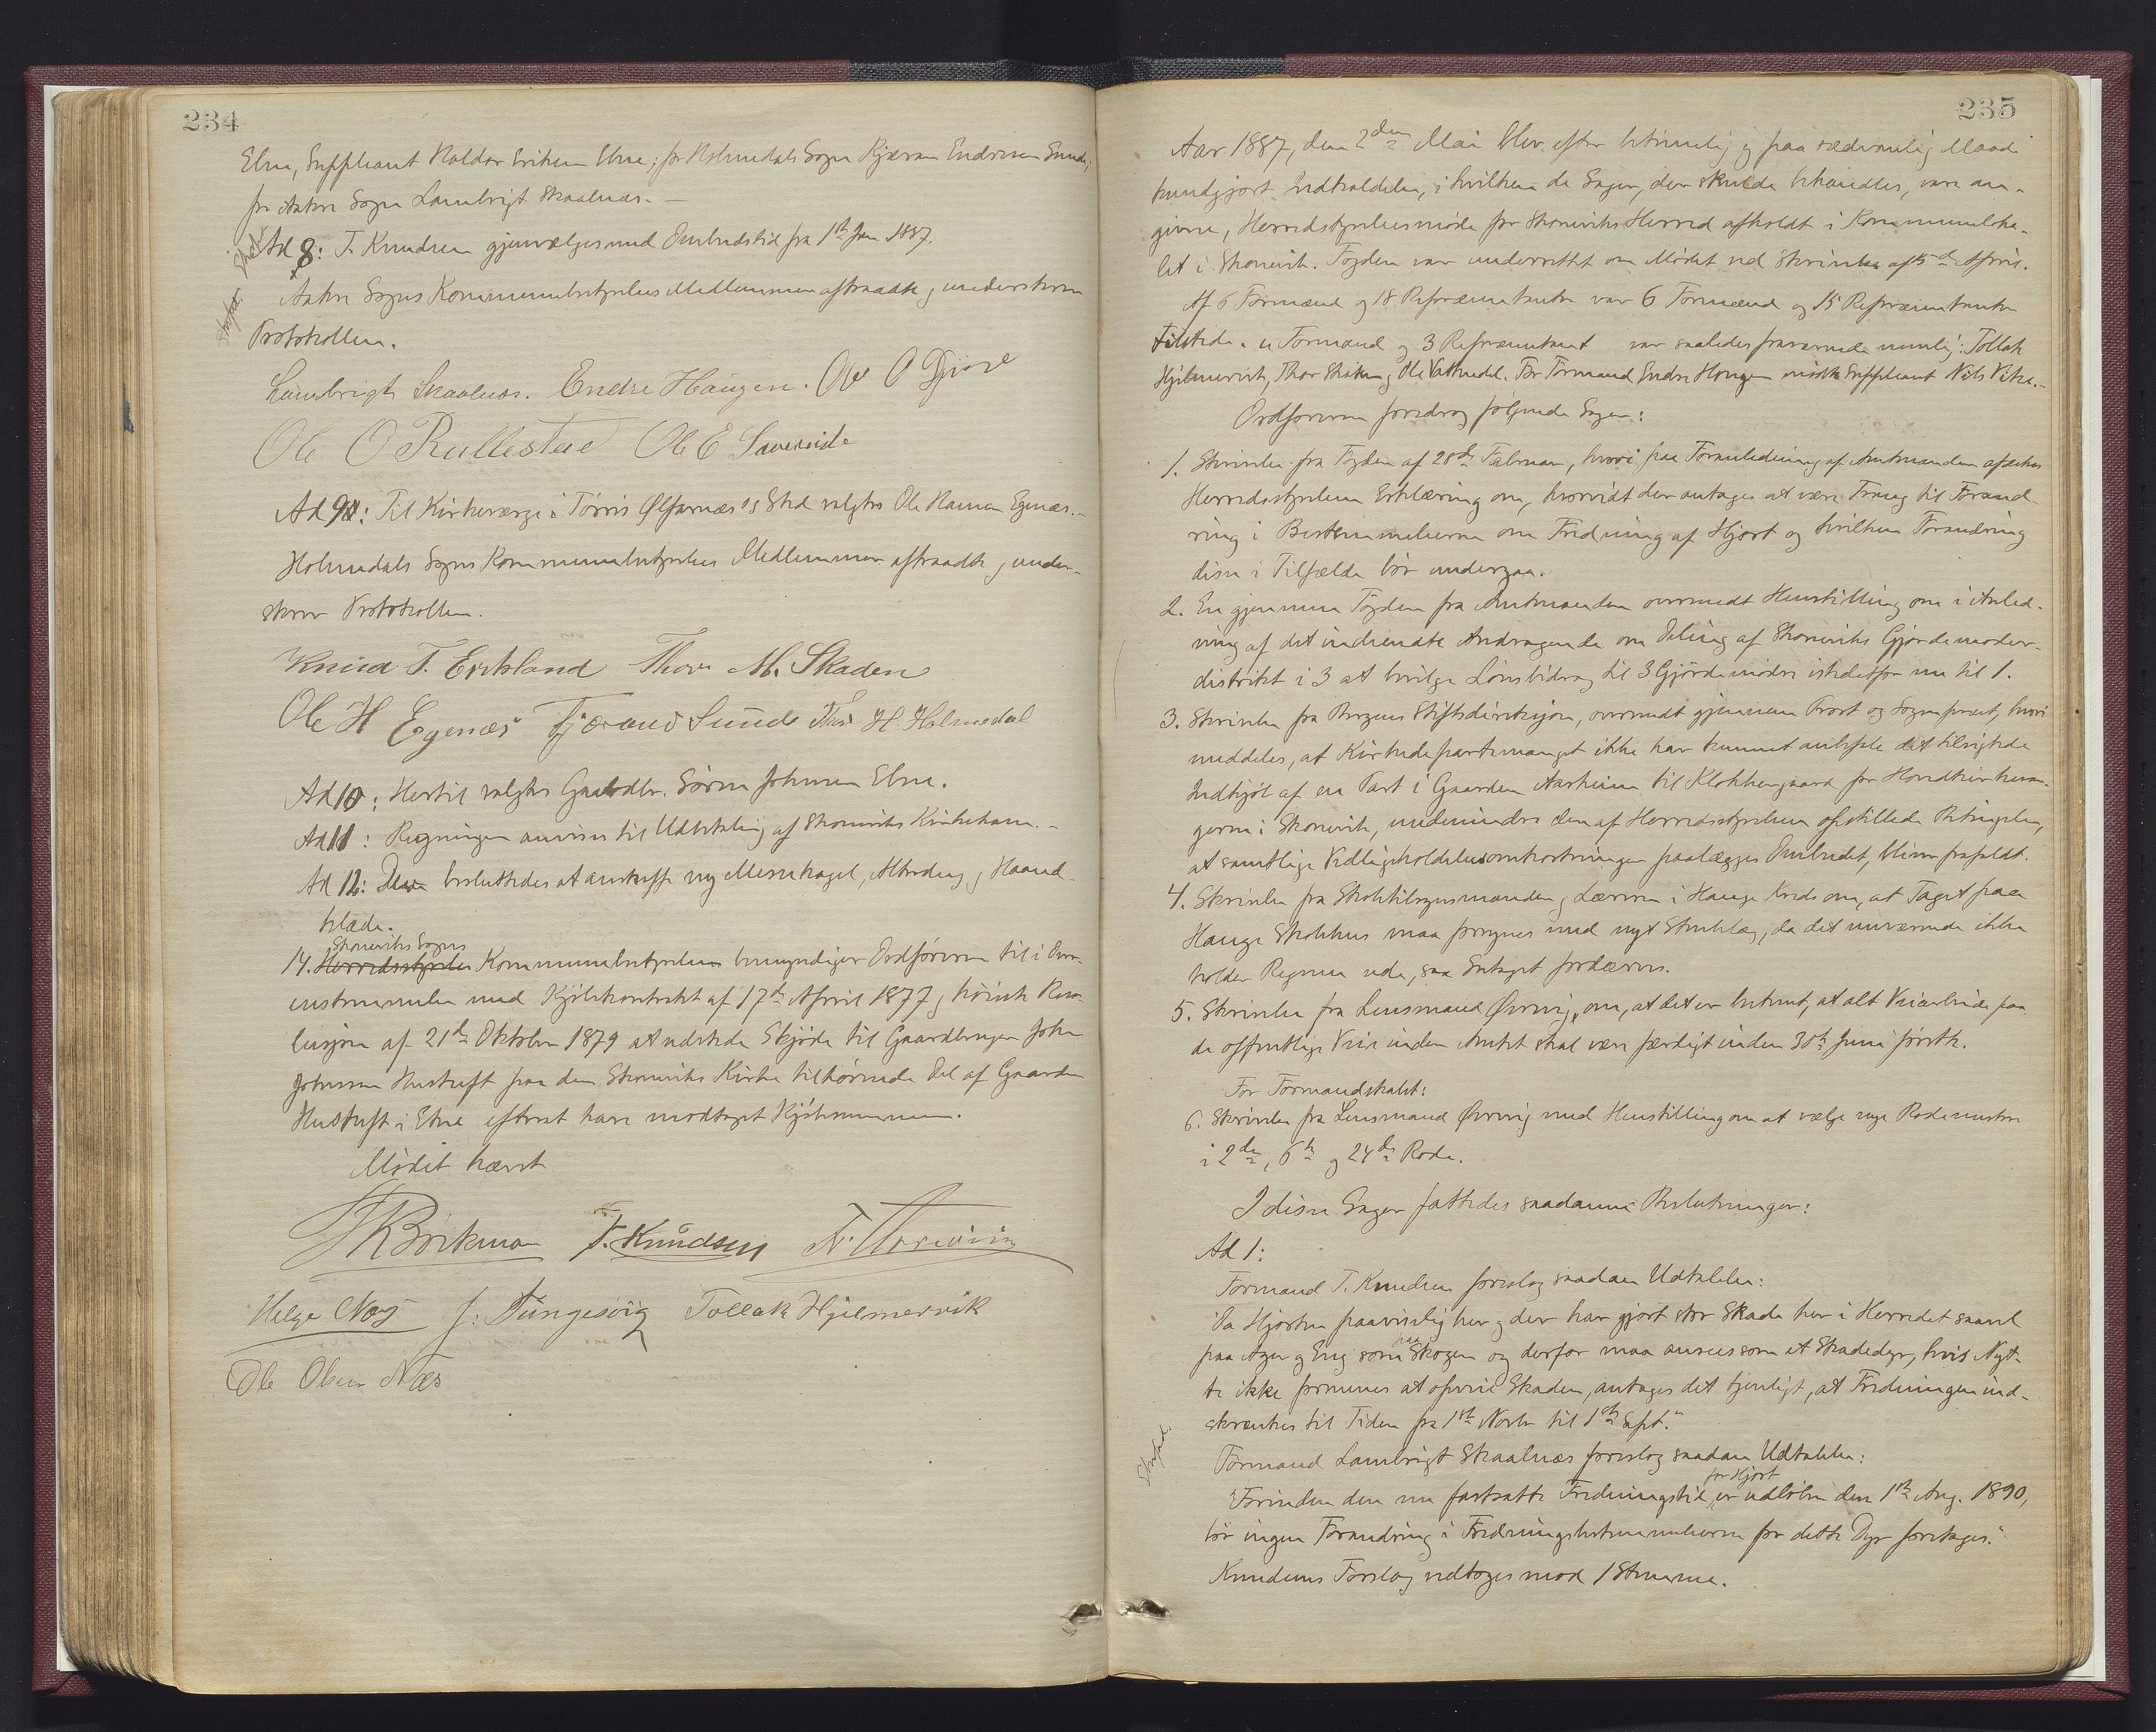 234
Ebne, Suppleant Haldor Eriksen Ebne; for Holmedals Sogn Kjæran Endresen Sunde;
for Aakre Sogn Lambrigt Skaalnæs.
Ad 8: T. Knudsen gjenvælges med Ombudstid fra 1ste Jan 1887.
Aakre Sogns Kommunebestyrelses Medlemmer aftraadte og underskrev
Protokollen.
Lambrigt Skaalnæs. Endre Haugen. Ole O
Ole O Rullestad Ole E
Ad 9: Til Kirkeværge i Tørris Ølfarnæs's Sted valgtes Ole Hansen Egenæs.
Holmedals Sogns Kommunebestyrelses Medlemmer aftraadte og under-
skrev Protokollen.
Knud T. Erikland Thor M. Skaden
Ole H Egenæs Kjærand Sunde Thor H. Holmedal
Ad 10: Hertil valgtes Gaardbr. Sören Johnsen Ebne.
Ad 11: Regningen anvises til Udbetaling af Skonevíks Kirkekasse.
Ad 12: Der besluttedes at anskaffe ny Messehagel, Alterdug og Haand-
klæde.
Skoneviks Sogns
14. Herredsstyrelses Kommunebestyrelse bemyndiger Ordføreren til i Over-
ensstemmelse med Kjöbekontrakt af 17de April 1877 og höieste Reso-
lusjon af 21de Oktober 1879 at udstede Skjöde til Gaardbruger John
Johnsen Hustuft paa den Skoneviks Kirke tilhörende Del af Gaarden
Hustuft i Etne efterat have modtaget Kjöbesummen.
Mödet hævet
T. Knudsen
Helge Næs J. Tungesvig Tollak Hjelmervik
Ole Olsen Næs
235
Aar 1887, den 2den Mai blev efter betimelig og paa sædvanlig Maade
kundgjort Indkaldelse, i hvilken de Sager, der skulde behandles, vare an-
givne, Herredsstyrelsesmöde for Skoneviks Herred afholdt i Kommuneloka-
let i Skonevik. Fogden var underrettet om Mödet ved Skrivelse af 15de April.
Af 6 Formænd og 18 Repræsentanter var 6 Formænd og 15 Repræsentanter
tilstede. Formænd og 3 Repræsentant var saaledes fraværende nemlig: Tollak
Hjelmervik, Thor Skaden og Ole Vattnedal. For Formand Endre Haugen mödte Suppleant Nils
Ordföreren foredrog fölgende Sager:
1. Skrivelse fra Fogden af 28de Februar, hvori paa Foranledning af Amtmanden afæskes
Herredsstyrelsens Erklæring om, hvorvidt der antages at være Trang til Forand-
ring i Bestemmelserne om Fredning af Hjort og hvilken Forandring
disse i Tilfælde bör undergaa.
2. En gjennem Fogden fra Amtmanden oversendt Henstilling om i Anled-
ning af det indsendte Andragende om Deling af Skoneviks Gjordemoder-
distrikt i 3 at bevilge Lönsbidrag til 3 Gjordemödre istedetfor nu til 1.
3. Skrivelse fra Bergens Stiftsdireksjon, oversendt gjennem Provst og Sogneprest, hvori
meddeles, at Kirkedepartemanget ikke har kunnet anbefale det tilsigtede
Indkjöb af en Part i Gaarden Aarheim til Klokkergaard for Hovedkirkesan-
geren i Skonevik, medmindre den af Herredsstyrelsen opstillede Betingelse,
at samtlige Vedligeholdelsesomkostninger paalægges Ombudet, bliver frafaldt.
4. Skrivelse fra Skoletilsynsmanden og Læreren i Hauge Kreds om, at Taget paa
Hauge Skolehus maa fornyes med nyt Stenlag, da det nuværende ikke
holder Regnen ude, saa Entaget fordærves.
5. Skrivelse fra Lensmand Øvrevig, om, at det er bestemt, at alt Veiarbeide paa
de offentlige Veie inden Amtet skal være færdigt inden 30te Juni förstk.
For Formandskabet:
6. Skrivelse fra Lensmand Øvrevig med Henstilling om at vælge nye Rodemestre
i 2den, 6te og 24de Rode.
I disse Sager fattedes saadanne Beslutninger:
Ad 1:
Formand T. Knudsen foreslog saadan Udtalelse:
"Da Hjorten paaviselig her og der har gjort stor Skade her i Herredet saavel
paa Ager og Eng som paa Skogen og derfor maa ansees som et Skadedyr, hvis Nyt-
te ikke formenes at opveie Skaden, antages det tjenligt, at Fredningen ind-
skrænkes til Tiden fra 1ste Novbr til 1ste Sept."
Formand Lambrigt Skaalnæs foreslog saadan Udtalelse:
for Hjort
"Forinden den nu fastsatte Fredningstid er udlöben den 1ste Aug. 1890,
bör ingen Forandring i Fredningsbestemmelserne for dette Dyr foretages."
Knudsens Forslag vedtoges mod 1 Stemme.